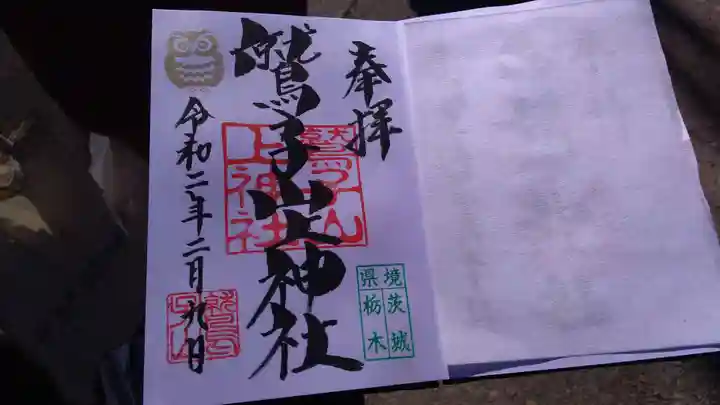 奉拝
鷲子山上神社
鷲子山
上神社
令和二年二月九日
鷲子
山
境 茨城
県 栃木